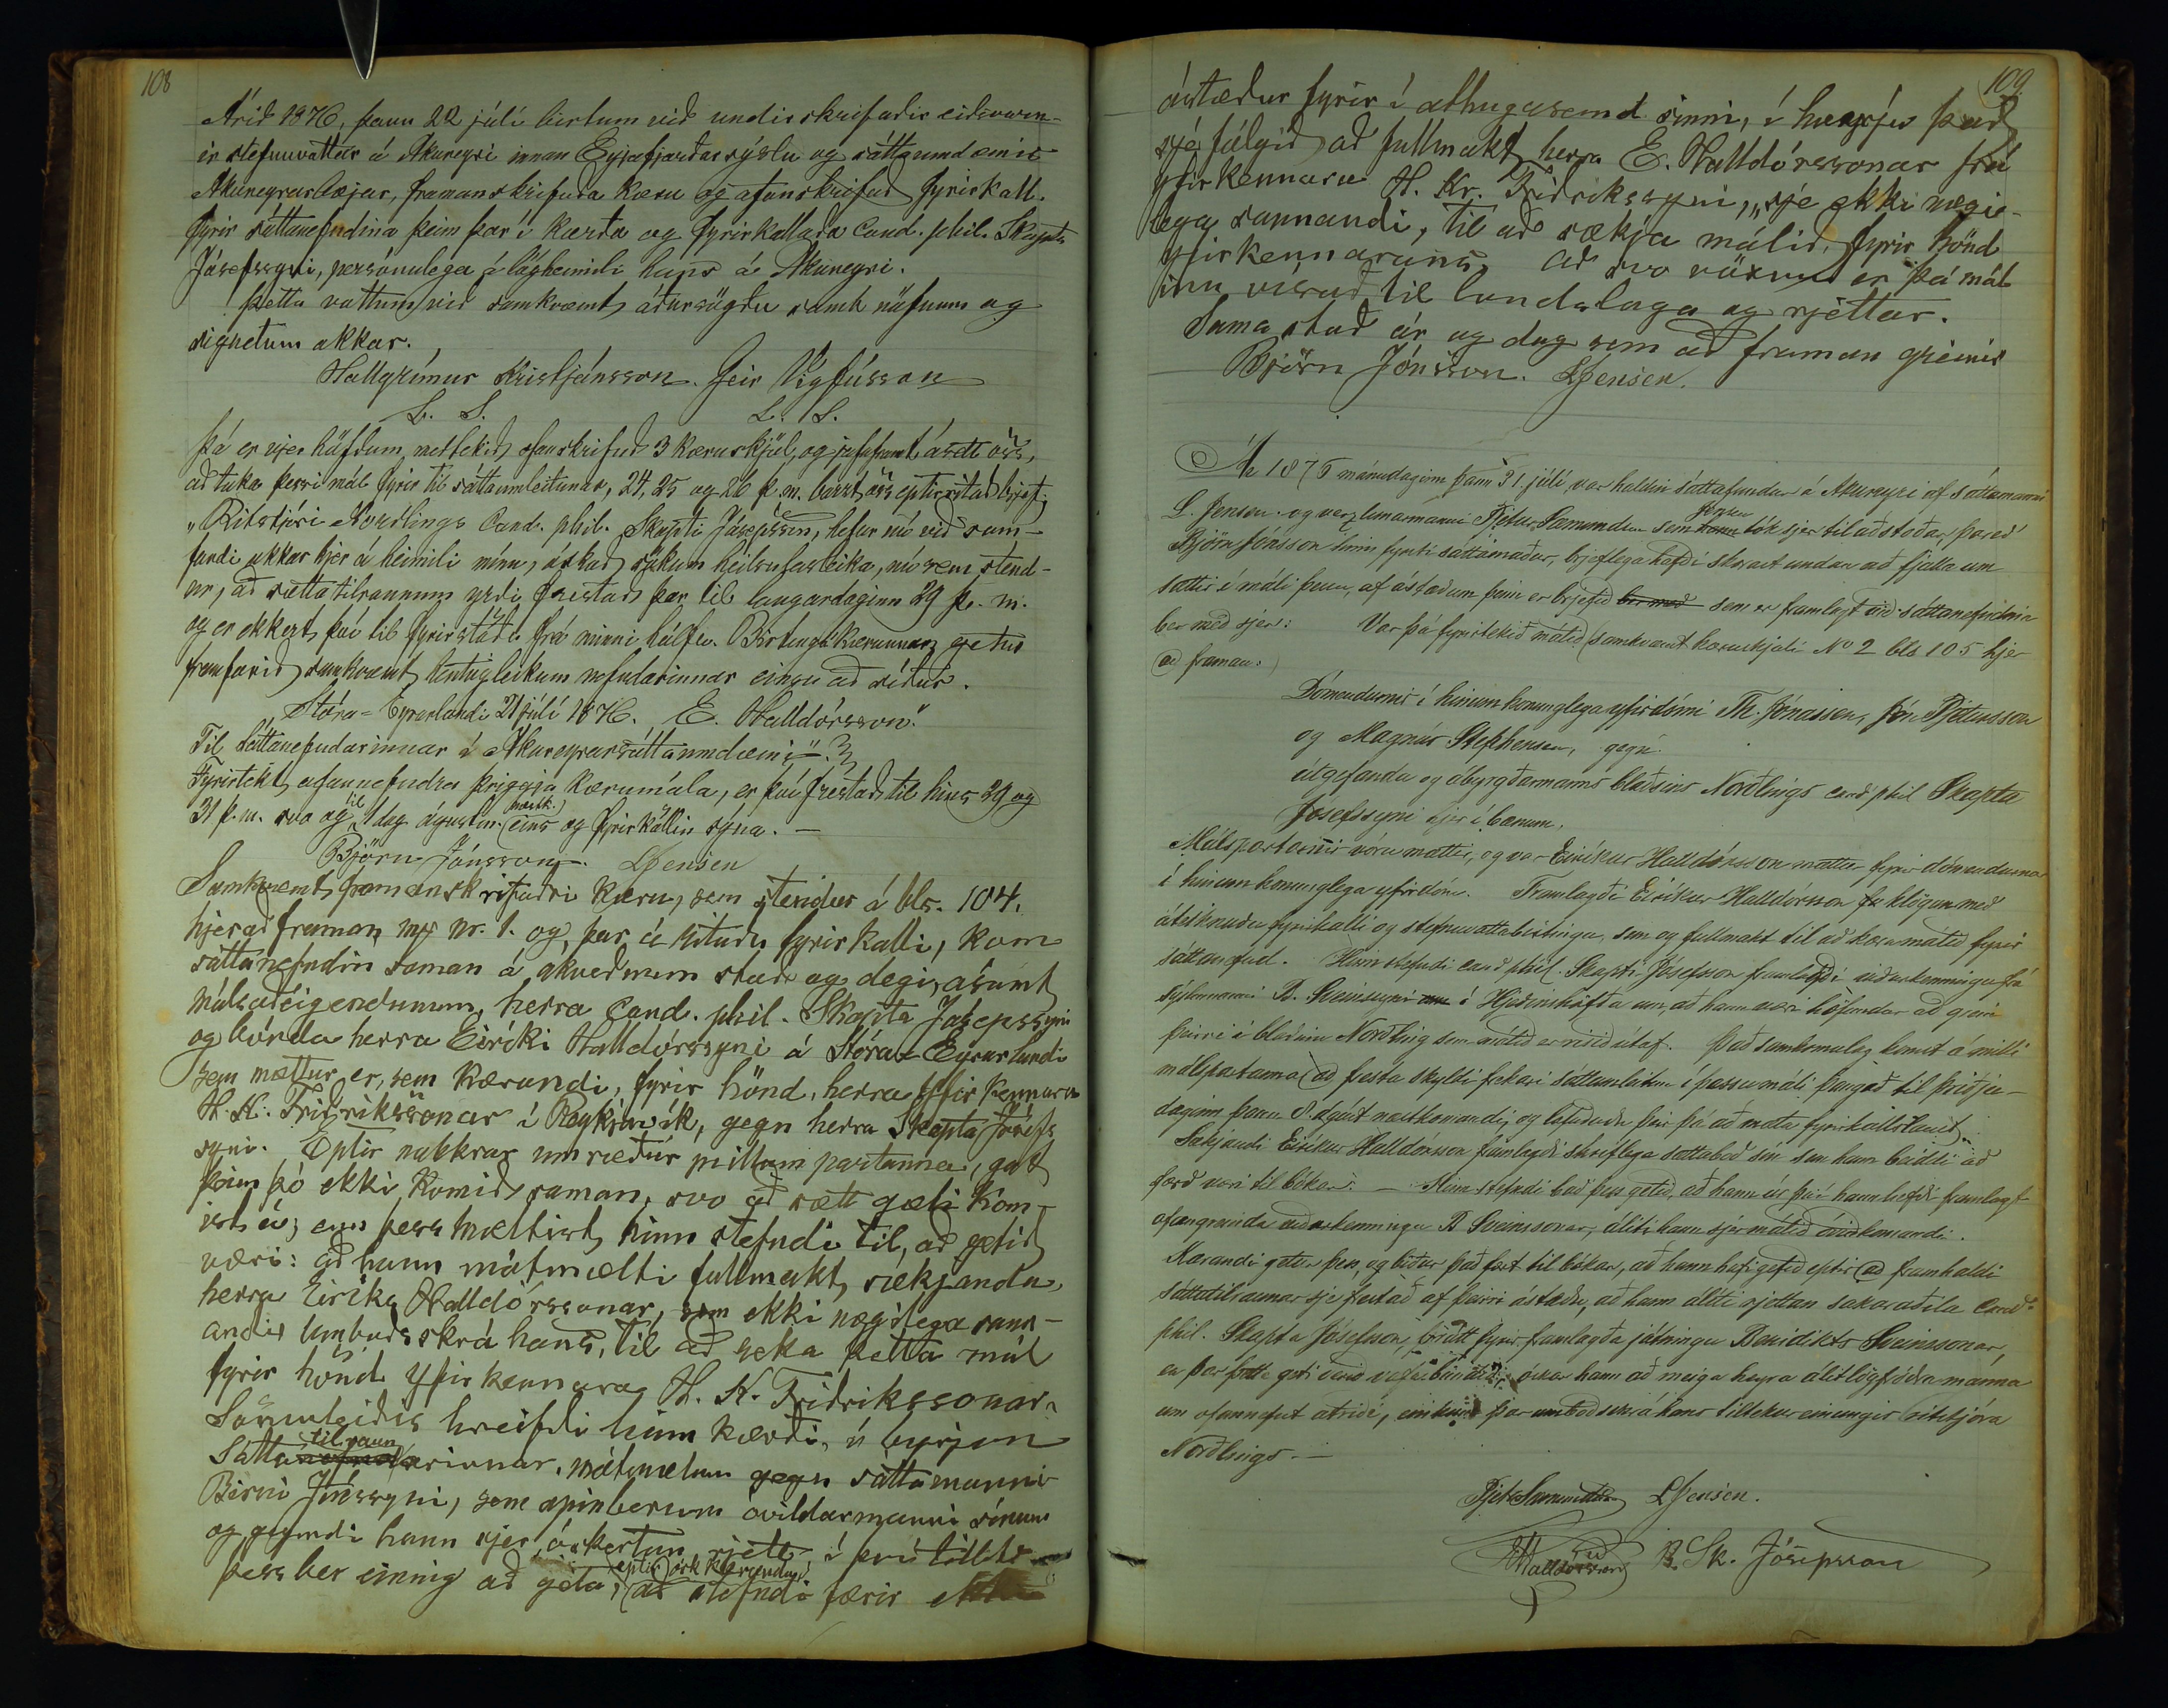 108
Árið 1876, þann 22 júlí birtum við undirskrifaðir eiðsvarn-
ir stefnuvottar á Akureyri innan Eyjafjarðarsýslu og sáttaumdæmis
Akureyrarbæjar, framanskrifaða kæru og ofanskrifað fyrirkall
fyrir sáttanefndina þeim þar í kærða og fyrirkallaða Cand. phil. Skapta
Jósefssyni, persónulega á lögheimili hans á Akureyri.
Þetta vottum við samkvæmt áðursögðu með nöfnum og
signetum okkar.
Hallgrímur Kristjánsson. Geir Vigfússon
L. S. L. S.
Þá er vjer höfðum meðtekið ofanskrifuð 3 kæruskjöl, og jafnframt ásett oss,
að taka þessi mál fyrir til sáttaumleitunar, 24, 25 og 26 þ. m. barst oss eptirritað brjef:
„Ritstjóri Norðlings Cand. phil. Skapti Jósepsson, hefur nú við sam-
fundi okkar hjer á heimili mínu, óskað sökum heilsulasleika, nú sem stend-
ur, að sættatilraunum yrði frestað þar til laugardaginn 29 þ. m.
og er ekkert því til fyrirstöðu frá minni hálfu. Birting kærunnar getur
framfarið samkvæmt hentugleikum nefndarinnar eins að síður.
Stóra-Eyrarlandi 21 júlí 1876. E. Halldórsson."
Til Sáttanefndarinnar í Akureyrarsáttaumdæmi"
Fyrirtekt ofannefndra þriggja kærumála, er því frestað til hins 29 og
31 þ. m. svo og til 1 dag ágústm. næstk. eins og fyrirköllin sýna. —
Björn Jónsson. LJensen
Samkvæmt framanskrifaðri kæru, sem stendur á bls. 104.
hjer að framan nr. 1. og þar á rituðu fyrirkalli, kom
sáttanefndin saman á ákveðnum stað og degi, ásamt
málsaðeigendunum, herra Cand. phil. Skapta Jósepssyni
og bónda herra Eiríki Halldórssyni á Stóra-Eyrarlandi
sem mættur er, sem kærandi, fyrir hönd herra yfirkennara
H. K. Friðrikssonar í Reykjavík, gegn herra Skapta Jósefs
syni. Eptir nokkrar umræður millum partanna, gat
þeim þó ekki komið saman, svo að sætt gæti kom-
ist á; enn þess mæltist hinn stefndi til, að getið
væri: að hann mótmælti fullmakt sækjanda,
herra Eiríks Halldórssonar, sem ekki nægilega sann-
andi umboðsskrá hans, til að sækja þetta mál
fyrir hönd yfirkennara H. K. Friðrikssonar.
Sömuleiðis hreifði hinn kærði, í byrjun
Sátta tilraun arinnar, mótmælum gegn sáttamanni
Birni Jónssyni, sem opinberum óvildarmanni sínum
og geymdi hann sjer óskertan rjett í því tilliti
Þess ber einnig að geta, eptir ósk kærandans, að stefndi færir
109
ástæður fyrir í athugasemd sinni, í hverju það
sje fólgið að fullmakt herra E. Halldórssonar frá
yfirkennara H. Kr. Friðrikssyni, „sje ekki nægi-
lega sannandi, til að sækja málið, fyrir hönd
yfirkennarans, að svo vöxnu er þá mál
inu vísað til landslaga og rjettar.
Sama stað ár og dag sem að framan greinir
Björn Jónsson. LJensen.
Ár 1876 mánudaginn þann 31. júlí var haldin sáttafundur á Akureyri af sáttamanni
L. Jensen og verzlunarmanni Pjetur Sæmundsen sem Jensen tók sjer til aðstoðar, þareð
Björn Jónsson hinn fyrsti sáttamaður, brjeflega hafði skorast undan að fjalla um
sættir í máli þessu, af ástæðum þeim er brjefið ber með sem er framlagt við sáttanefndina
ber með sjer: Var þá fyrirtekið málið samkvæmt kæruskjali No 2 bls 105 hjer
að framan:
Dómendurnir í hinum konunglega yfirdómi Th. Jónassen, Jón Pjetursson
og Magnús Stephensen, gegn
útgefanda og ábyrgðarmanns blaðsins Norðlings cand phil Skapta
Jósefssyni hjer í bænum.
Málspartarnir vóru mættir, og var Eiríkur Halldórsson mættur fyrir dómendurna
í hinum konunglega yfirdómi. Framlagði Eiríkur Halldórsson klögun með
áteiknuðu fyrirkalli og stefnuvottabirtingu, sem og fullmakt til að kæra málið fyrir
sáttanefnd. Hinn stefndi cand phil. Skapti Jósefsson framlagði viðurkenningu frá
sýslumanni B. Sveinssyni á Hjeðinshöfða um, að hann væri höfundur að grein
þeirri í blaðinu Norðling sem málið er risið útaf. Það samkomulag komst á milli
málspartanna að fresta skyldi frekari sáttaumleitun í þessu máli þangað til þriðju-
daginn þann 8. ágúst næstkomandi, og lofuðu þeir þá að mæta fyrirkallslaust.
Sækjandi Eiríkur Halldórsson framlagði skriflega sáttaboð sín sem hann beiddi að
færð væri til bókar. — Hinn stefndi bað þess getið, að hann úr því hann hefði framlagt
ofangreinda viðurkenningu B Sveinssonar, áliti hann sjer málið óviðkomandi.
Kærandi getur þess, og biður það fært til bókar, að hann hafi gefið eptir að framhaldi
sáttatilraunar sje frestað af þeirri ástæðu, að hann áliti rjettan sakaraðila Cand.
phil. Skapta Jósefsson, þrátt fyrir framlagða játningu Benidikts Sveinssonar,
en þar þetta geti verið vafa bundið, óskar hann að meiga heyra álit lögfróðra manna
um ofannefnt atriði, einkum þar umboðsskrá hans tiltekur einungis ritstjóra
Norðlings. —
Pjetur Sæmundsen LJensen.
EHalldórsson B. Sk. Jósepsson